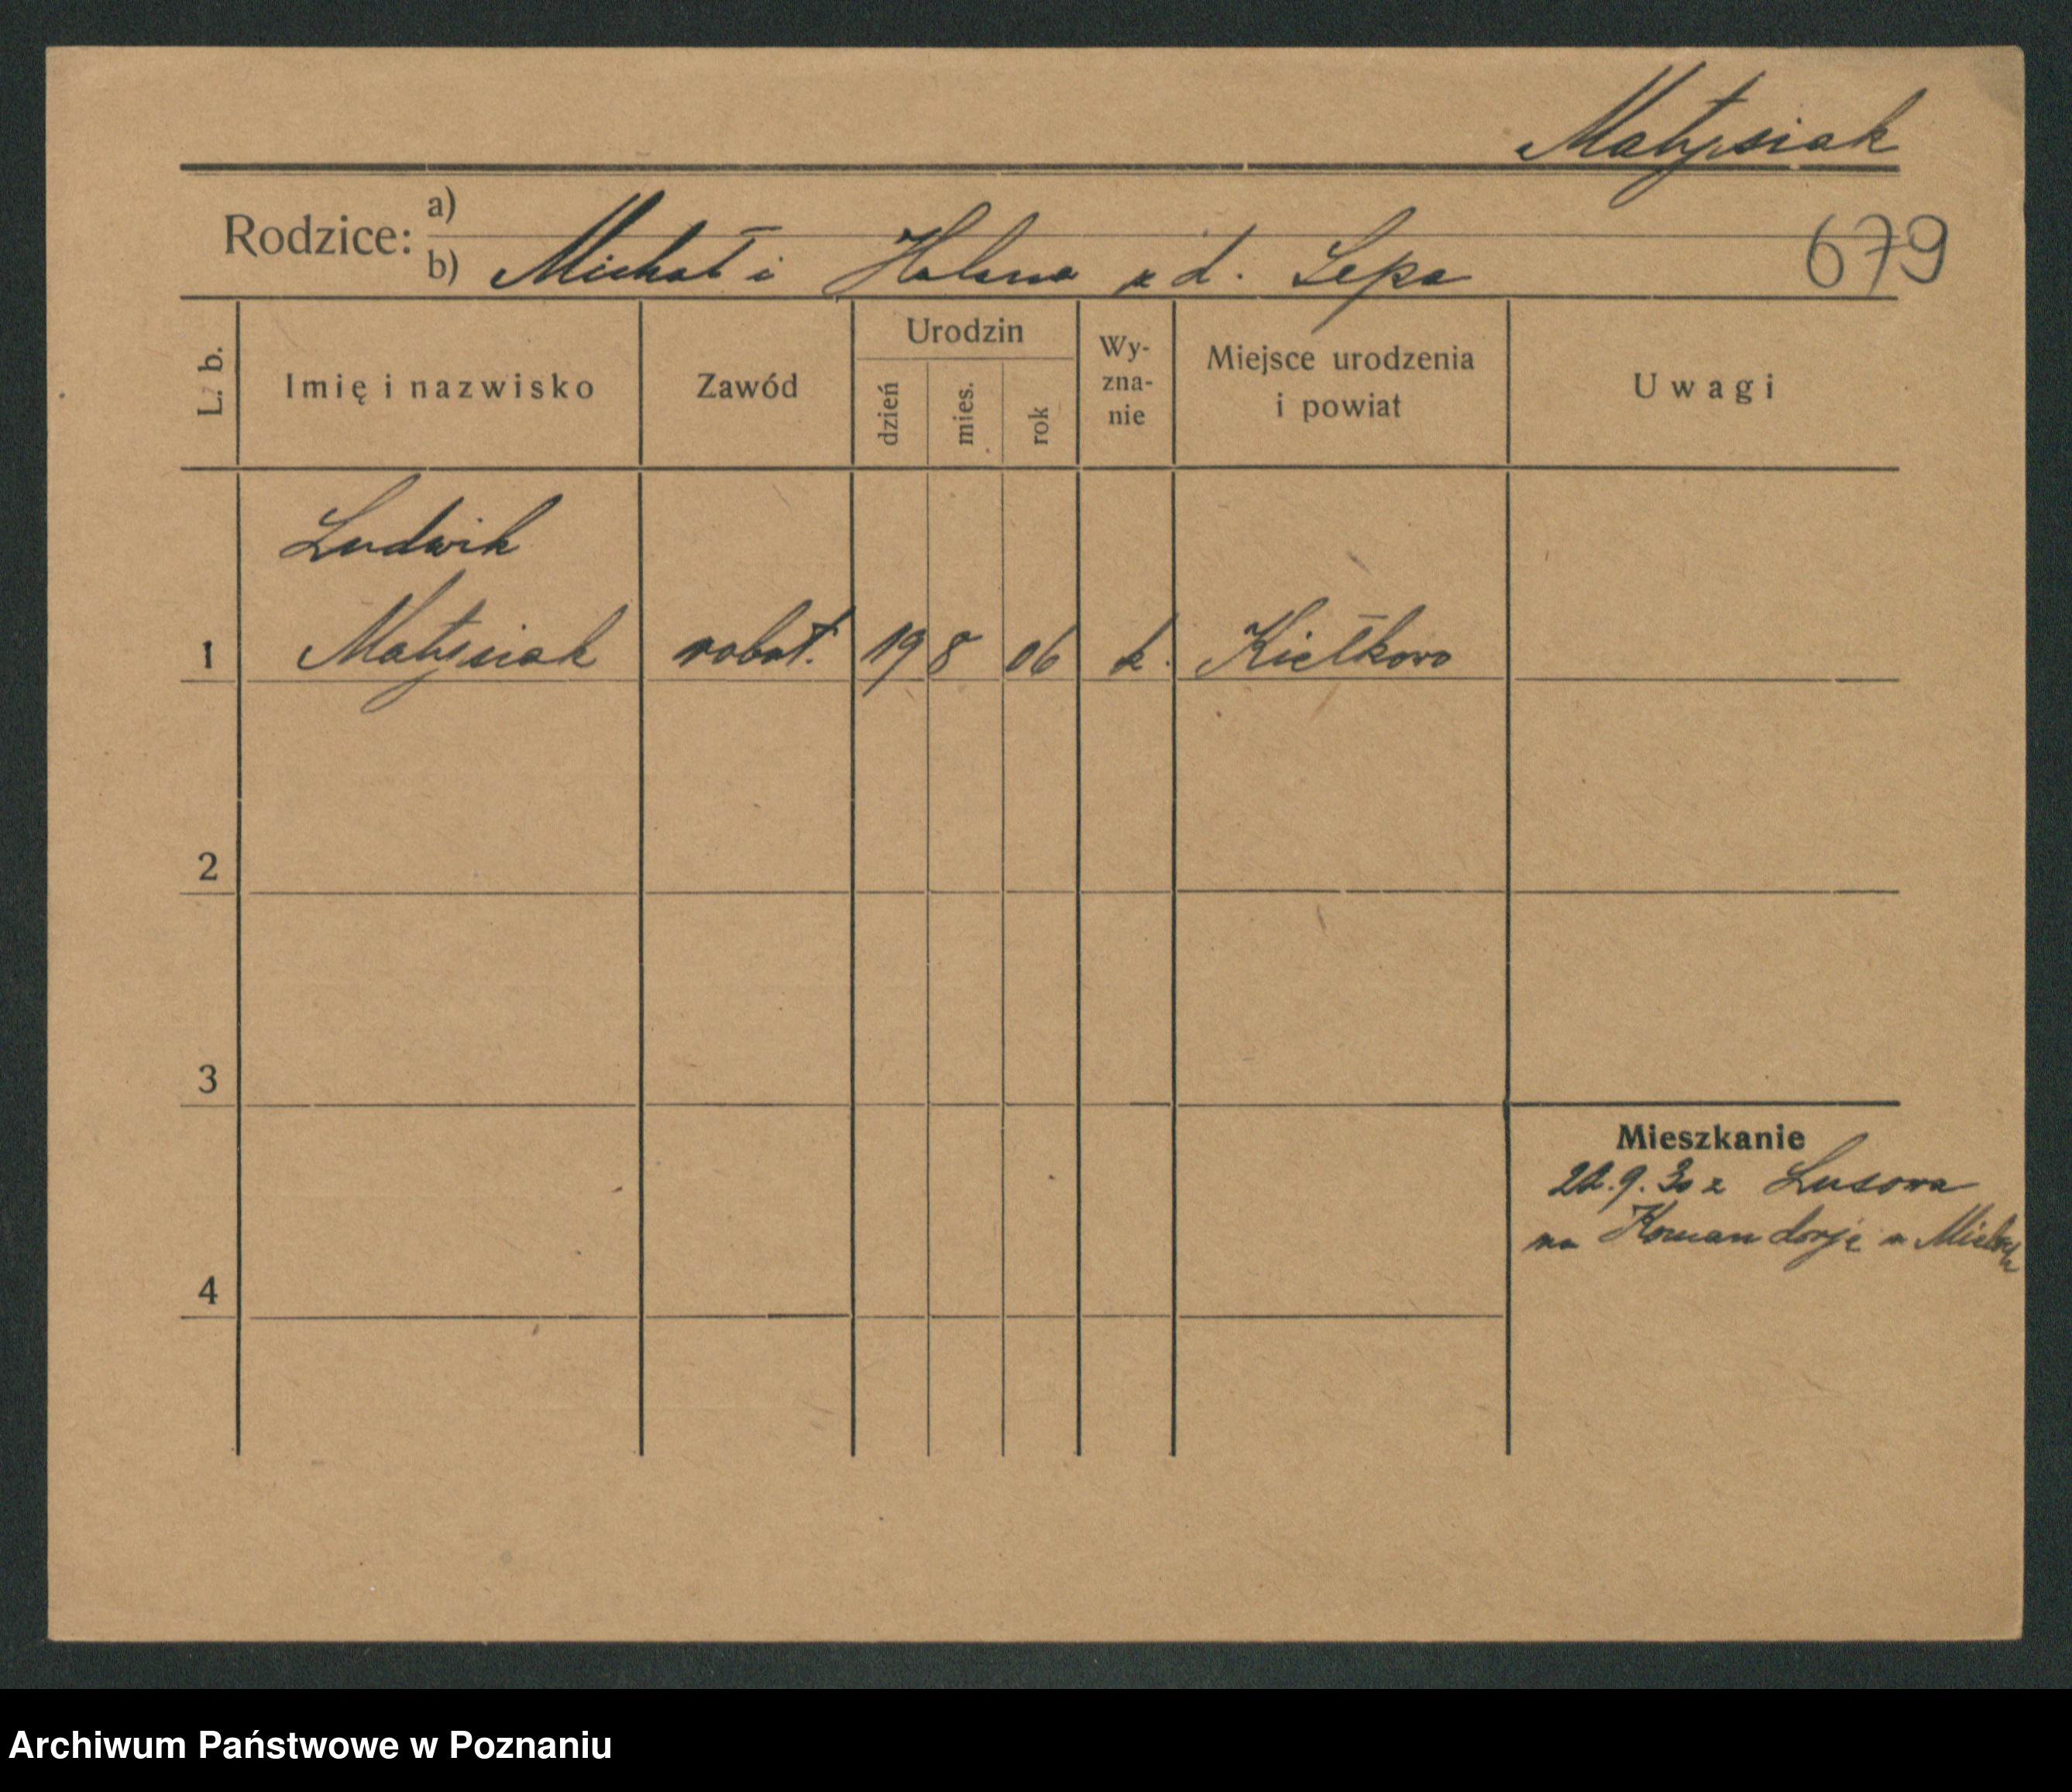 Matysiak
Rodzice: a)
679
b) Michał i Helena z d. Lepa
L. b.
Imię i nazwisko
Zawód
Urodzin
dzień
mies.
rok
Wy-
zna-
nie
Miejsce urodzenia
i powiat
Uwagi
Ludwik
1 Matysiak robot. 19 8 06 k. Kiełkowo
2
3
Mieszkanie
9. 30 z Lusowa
na Komandorję
4
Archiwum Państwowe w Poznaniu